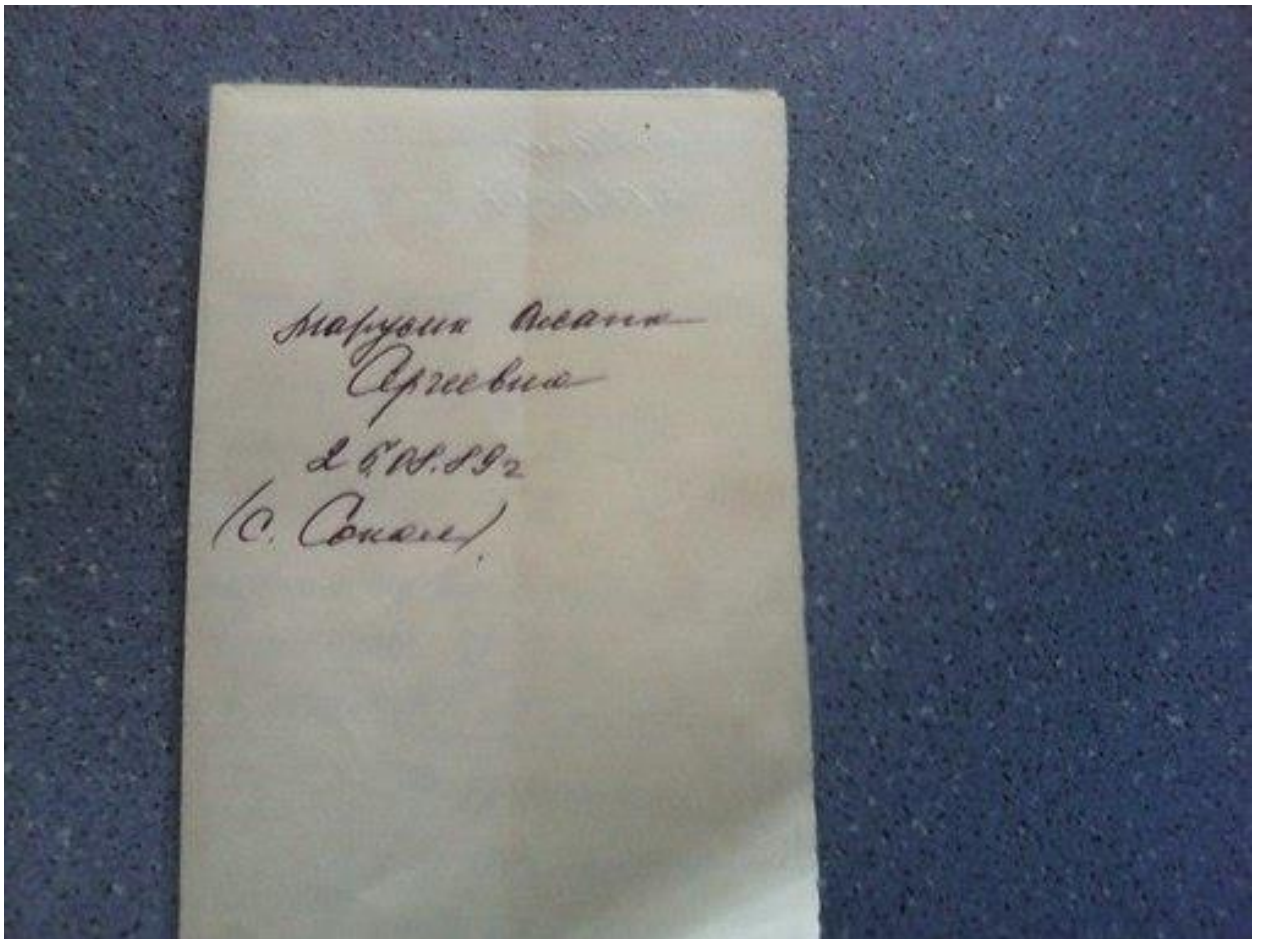 Марусик Оксана
Сергеевна
25.08.89г
(с. Сокол)